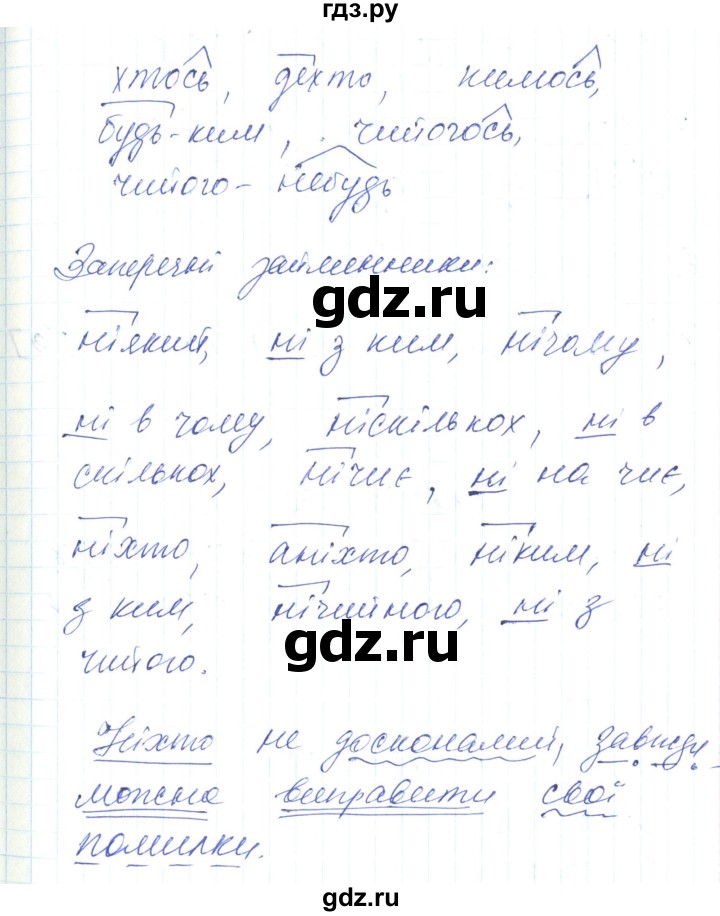 гдз.ру
хтось, дехто, кимось,
будь-ким, чийогось,
чийого-небудь
Заперечні займенники:
gdz.ru
ніякий, ні з ким, нічому,
ні в чому, ніскількох, ні в
скількох, нічиє, ні на чиє,
ніхто, аніхто, ніким, ні
з ким, нічийного, ні з
gdz.ru
чийого.
Ніхто не досконалий, завжди
можна виправити свої
помилки.
gdz.ru